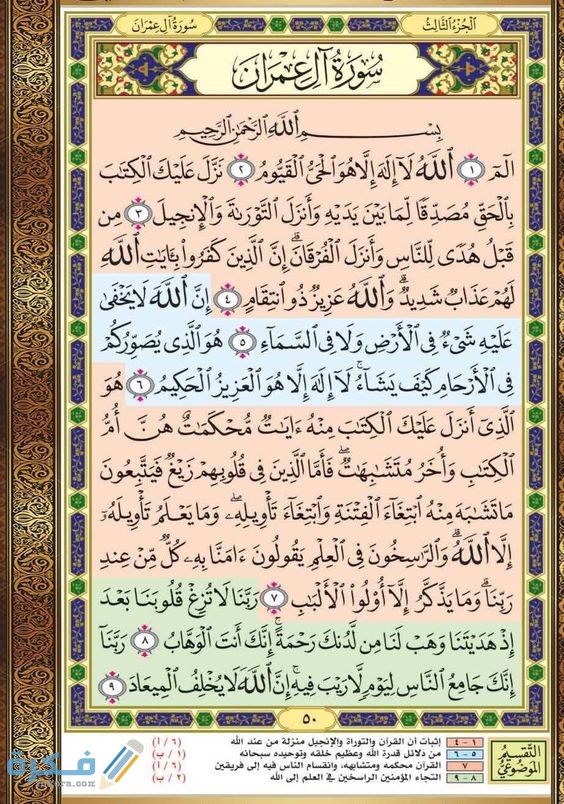 الجزء الثالث
سورة آل عمران
سُورَةُ آلِ عِمْرَانَ
بِسْمِ ٱللَّهِ ٱلرَّحْمَٰنِ ٱلرَّحِيمِ
الٓمٓ ١ ٱللَّهُ لَآ إِلَٰهَ إِلَّا هُوَ ٱلْحَىُّ ٱلْقَيُّومُ ٢ نَزَّلَ عَلَيْكَ ٱلْكِتَٰبَ
بِٱلْحَقِّ مُصَدِّقًا لِّمَا بَيْنَ يَدَيْهِ وَأَنزَلَ ٱلتَّوْرَىٰةَ وَٱلْإِنجِيلَ ٣ مِن
قَبْلُ هُدًى لِّلنَّاسِ وَأَنزَلَ ٱلْفُرْقَانَ ۗ إِنَّ ٱلَّذِينَ كَفَرُوا۟ بِـَٔايَٰتِ ٱللَّهِ
لَهُمْ عَذَابٌ شَدِيدٌ ۗ وَٱللَّهُ عَزِيزٌ ذُو ٱنتِقَامٍ ٤ إِنَّ ٱللَّهَ لَا يَخْفَىٰ
عَلَيْهِ شَىْءٌ فِى ٱلْأَرْضِ وَلَا فِى ٱلسَّمَآءِ ٥ هُوَ ٱلَّذِى يُصَوِّرُكُمْ
فِى ٱلْأَرْحَامِ كَيْفَ يَشَآءُ ۚ لَآ إِلَٰهَ إِلَّا هُوَ ٱلْعَزِيزُ ٱلْحَكِيمُ ٦ هُوَ
ٱلَّذِىٓ أَنزَلَ عَلَيْكَ ٱلْكِتَٰبَ مِنْهُ ءَايَٰتٌ مُّحْكَمَٰتٌ هُنَّ أُمُّ
ٱلْكِتَٰبِ وَأُخَرُ مُتَشَٰبِهَٰتٌ ۖ فَأَمَّا ٱلَّذِينَ فِى قُلُوبِهِمْ زَيْغٌ فَيَتَّبِعُونَ
مَا تَشَٰبَهَ مِنْهُ ٱبْتِغَآءَ ٱلْفِتْنَةِ وَٱبْتِغَآءَ تَأْوِيلِهِۦ ۗ وَمَا يَعْلَمُ تَأْوِيلَهُۥٓ
إِلَّا ٱللَّهُ ۗ وَٱلرَّٰسِخُونَ فِى ٱلْعِلْمِ يَقُولُونَ ءَامَنَّا بِهِۦ كُلٌّ مِّنْ عِندِ
رَبِّنَا ۗ وَمَا يَذَّكَّرُ إِلَّآ أُو۟لُوا۟ ٱلْأَلْبَٰبِ ٧ رَبَّنَا لَا تُزِغْ قُلُوبَنَا بَعْدَ
إِذْ هَدَيْتَنَا وَهَبْ لَنَا مِن لَّدُنكَ رَحْمَةً ۚ إِنَّكَ أَنتَ ٱلْوَهَّابُ ٨ رَبَّنَآ
إِنَّكَ جَامِعُ ٱلنَّاسِ لِيَوْمٍ لَّا رَيْبَ فِيهِ ۚ إِنَّ ٱللَّهَ لَا يُخْلِفُ ٱلْمِيعَادَ ٩
٥٠
التقسيم الموضوعي
١ - ٤ إثبات أن القرآن والتوراة والإنجيل منزلة من عند الله (٦ / أ)
٥ - ٦ من دلائل قدرة الله وعظيم خلقه وتوحيده سبحانه (١ / ب)
٧ القرآن محكمه ومتشابهه، وانقسام الناس فيه إلى فريقين (٦ / أ)
٨ - ٩ التجاء المؤمنين الراسخين في العلم إلى الله (٢ / ب)
فكرة